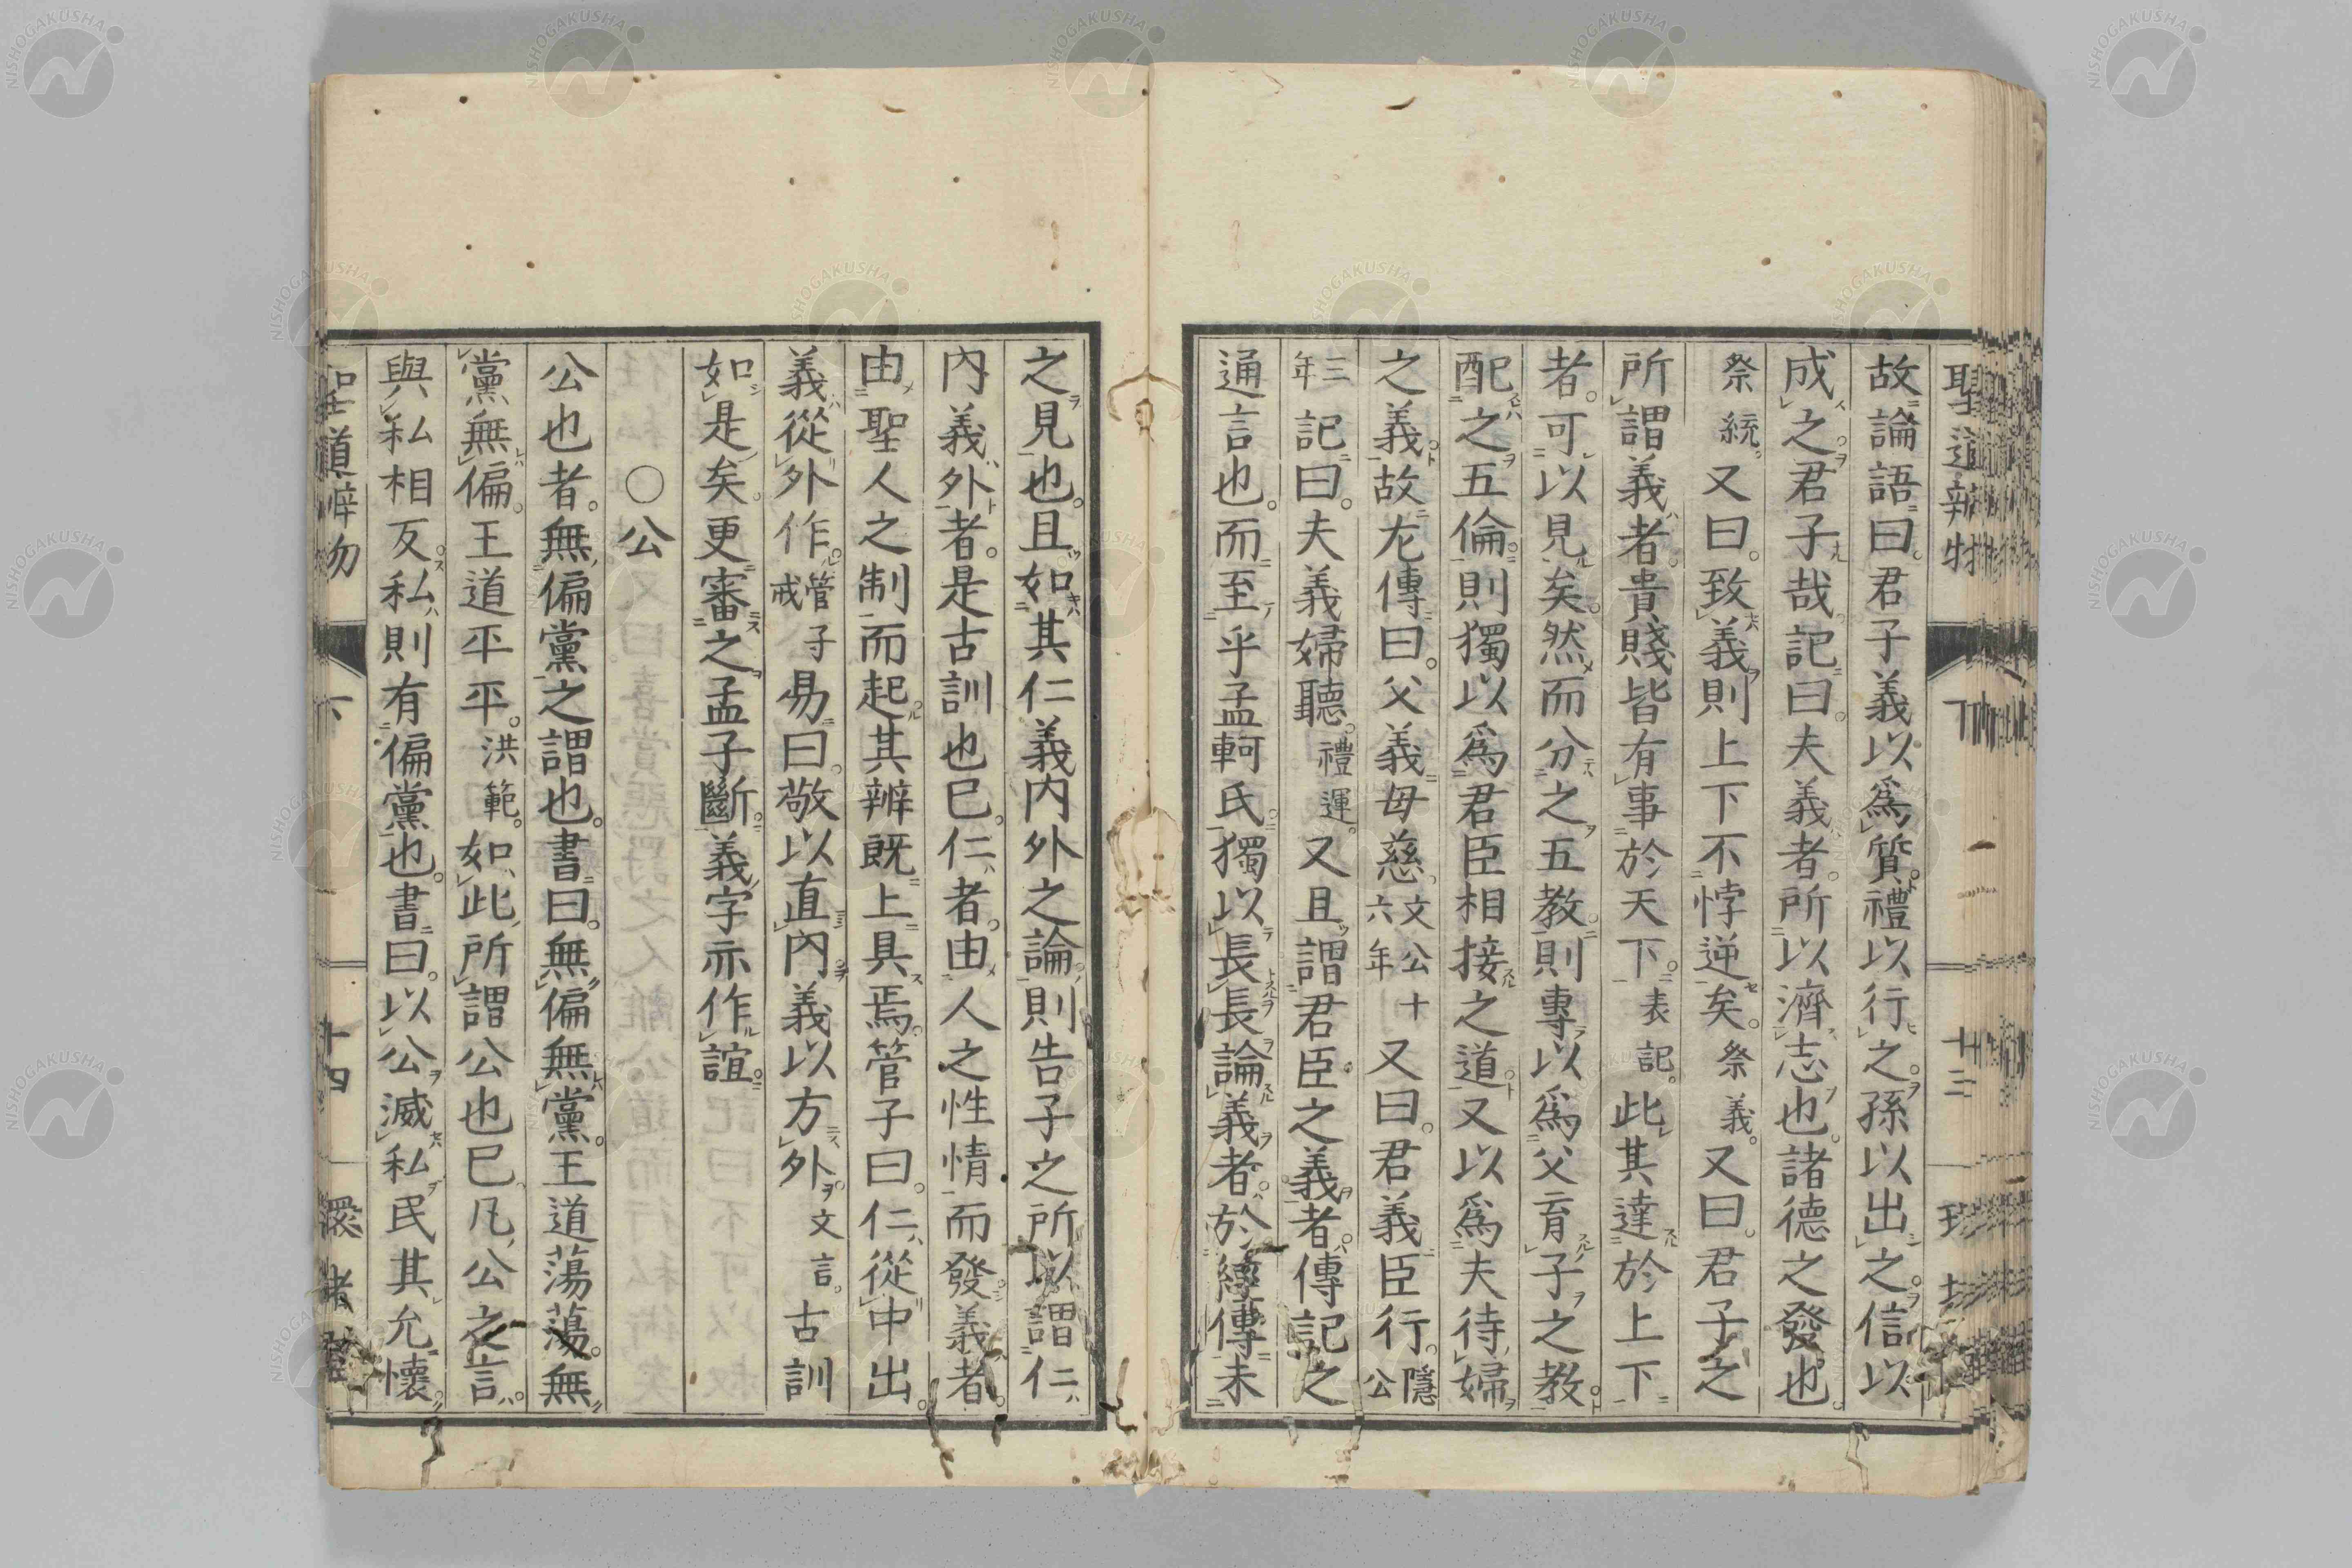 聖道辨物 下 十三
故論語曰。君子義以爲質。禮以行之。孫以出之。信以
成之。君子哉。記曰。夫義者。所以濟志也。諸德之發也。
祭統。又曰。致義則上下不悖逆矣。祭義。又曰。君子之
所謂義者。貴賤皆有事於天下。表記。此其達於上下
者。可以見矣。然而分之五教。則專以爲父育子之教。
配之五倫。則獨以爲君臣相接之道。又以爲夫待婦
之義。故左傳曰。父義母慈。文公十六年 又曰。君義臣行。隱公
三年 記曰。夫義婦聽。禮運。又且謂君臣之義者。傳記之
通言也。而至乎孟軻氏。獨以長長論義者。於經傳未
之見也。且如其仁義内外之論。則告子之所以謂仁
内義外者。是古訓也已。仁者。由人之性情而發。義者。
由聖人之制而起。其辨既上具焉。管子曰。仁從中出。
義從外作。管子戒 易曰。敬以直内。義以方外。文言。古訓
如是矣。更審之。孟子斷。義字亦作誼。
○公
公也者。無偏黨之謂也。書曰。無偏無黨。王道蕩蕩。無
黨無偏。王道平平。洪範。如此所謂公也已。凡公之言。
與私相反。私則有偏黨也。書曰。以公滅私。民其允懷。
聖道辨物 下 十四 環堵
NISHOGAKUSHA